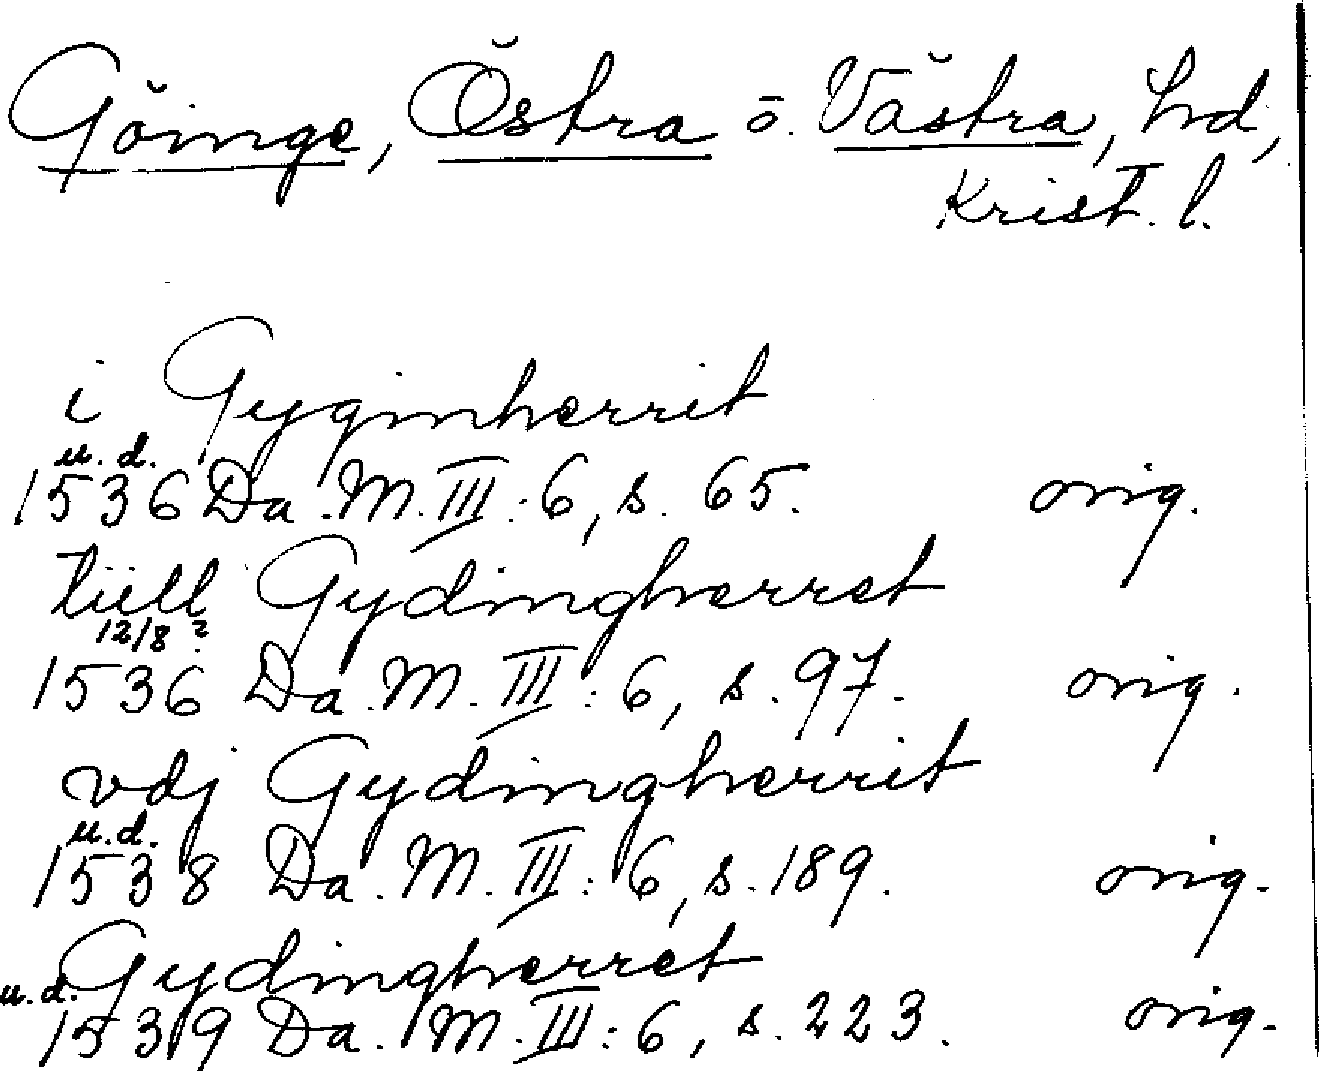 Göinge, Östra o. Västra, hd,
Krist. l.
i Gyginherrit
u. d.
1536 Da. M. III: 6, s. 65. orig.
tiill Gydingherret
12/8 ?
1536 Da. M. III: 6, s. 97. orig.
vdj Gydingherrit
u. d.
1538 Da. M. III: 6, s. 189. orig.
Gydingherret
u. d.
1539 Da. M. III: 6, s. 223. orig.